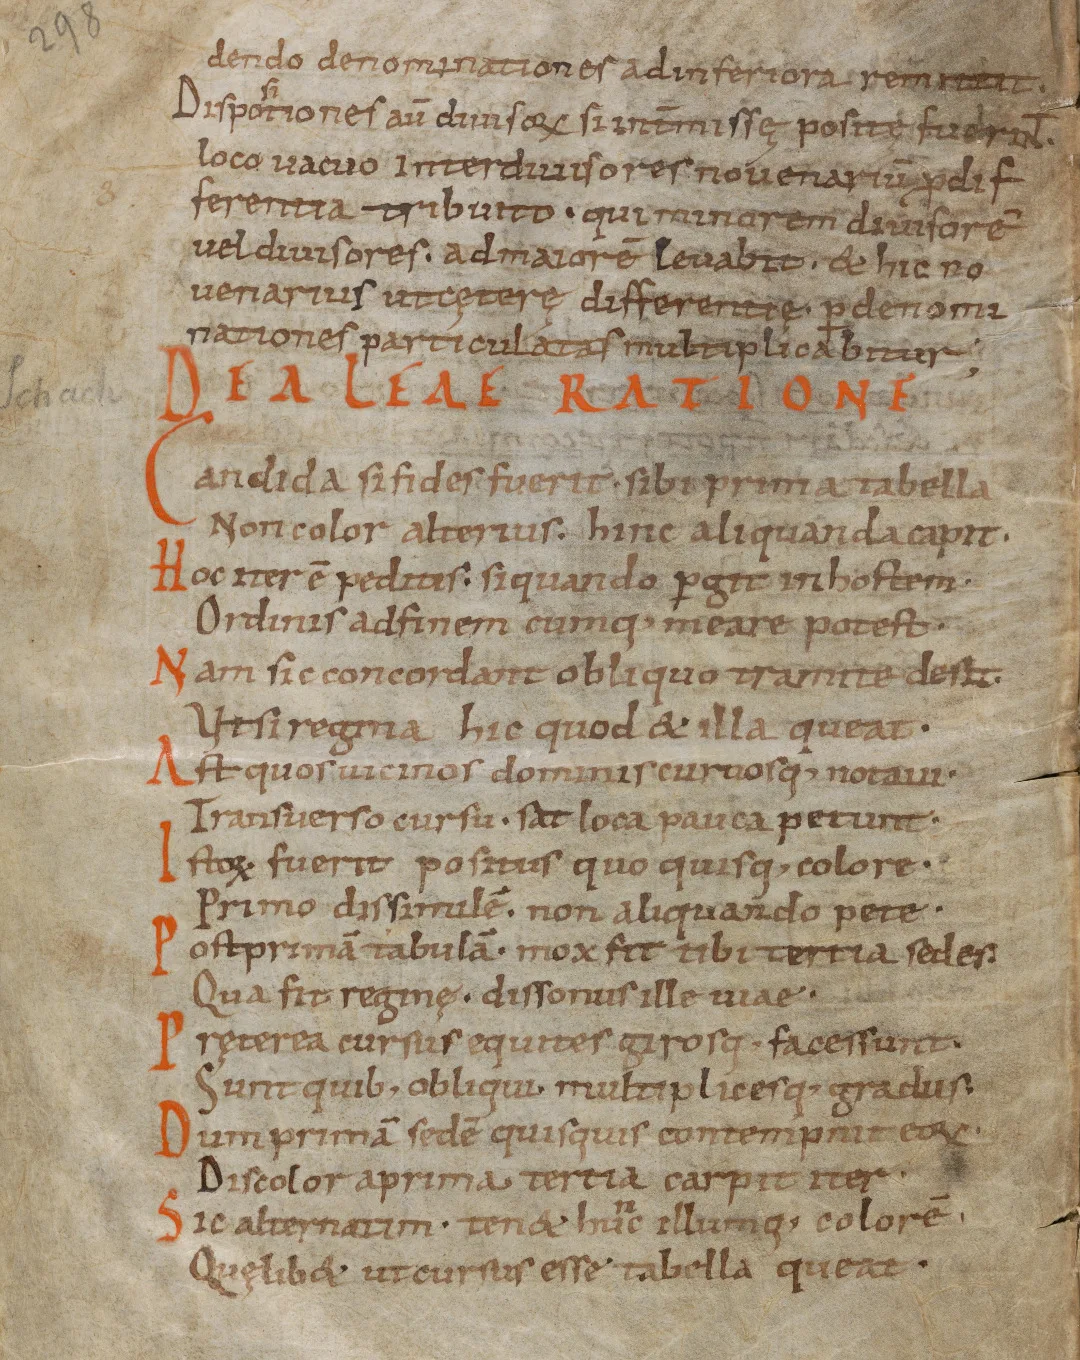 298
dendo denominationes ad inferiora remittit.
Dispotiones aū diuisoꝝ si int̄missę positę fuerin̄t.
si
loco uacuo Interdiuisores nouenariū ꝑ dif
ferentia tribuito. qui minorem diuisorē
uel diuisores. ad maiorē leuabit. & hic no
uenarius ut cętere differentię. ꝑ denomi
nationes particulatas multiplicabitur;
Schach
DE ALEAE RATIONE
Candida si fides fuerit. sibi prima tabella
Non color alterius. hinc aliquanda capit.
Hoc iter ē peditis. si quando ꝑgit in hostem.
Ordinis ad finem cumq, meare potest.
Nam sic concordant obliquo tramite desit.
Ut si regina hic quod & illa queat.
Ast quos uicinos dominis curuosq, notaui.
Transuerso cursu. sat loca pauca petunt.
Istoꝝ. fuerit positus quo quisq, colore.
Primo dissimilē. non aliquando pete.
Post primā tabulā. mox fit tibi tertia sedes.
Qua fit reginę. dissonus ille uiae.
Pręterea cursus equites girosq, facessunt.
Sunt quib, obliqui multiplicesq, gradus.
Dum primā sedē quisquis contempnit eoꝝ.
Discolor a prima tertia carpit iter.
n
Sic alternatim. ten& huc illumq, colorē.
Quęlib& ut cursus esse tabella queat.